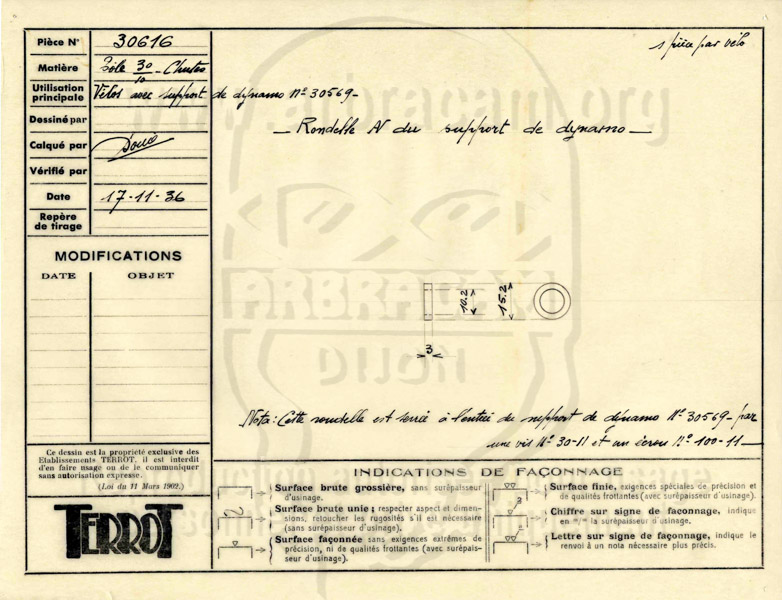 Pièce N° 30616
Matière Tôle 30/10 - Chutes
Utilisation principale Vélos avec support de dynamo N° 30569 -
Dessiné par
Calqué par
Vérifié par
Date 17-11-36
Repère de tirage
MODIFICATIONS
DATE OBJET
1 pièce par vélo
- Rondelle N du support de dynamo -
10.2
15.2
3
Nota: Cette rondelle est serrée à l'entrée du support de dynamo N° 30569 - par
une vis N° 30-11 et un écrou N° 100-11 -
Ce dessin est la propriété exclusive des
Etablissements TERROT, il est interdit
d'en faire usage ou de le communiquer
sans autorisation expresse.
(Loi du 11 Mars 1902.)
TERROT
INDICATIONS DE FAÇONNAGE
Surface brute grossière, sans surépaisseur
d'usinage.
Surface brute unie; respecter aspect et dimen-
sions, retoucher les rugosités s'il est nécessaire
(sans surépaisseur d'usinage).
Surface façonnée sans exigences extrêmes de
précision, ni de qualités frottantes (avec surépais-
seur d'usinage).
Surface finie, exigences spéciales de précision et
de qualités frottantes (avec surépaisseur d'usinage).
Chiffre sur signe de façonnage, indique
en m/m la surépaisseur d'usinage.
Lettre sur signe de façonnage, indique le
renvoi à un nota nécessaire plus précis.
www.arbracam.org
ARBRACAM
DIJON